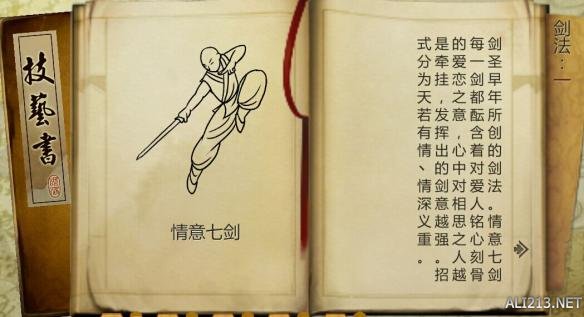 技藝書
情意七剑
剑法：一
剑圣早年所创的剑法。情意七剑
每一剑都酝含着对爱人铭心刻骨
的爱恋之意，心中对相思之人越
是牵挂，发挥出的剑意越强。招
式分为天若有情、情深义重。
ALI213.NET